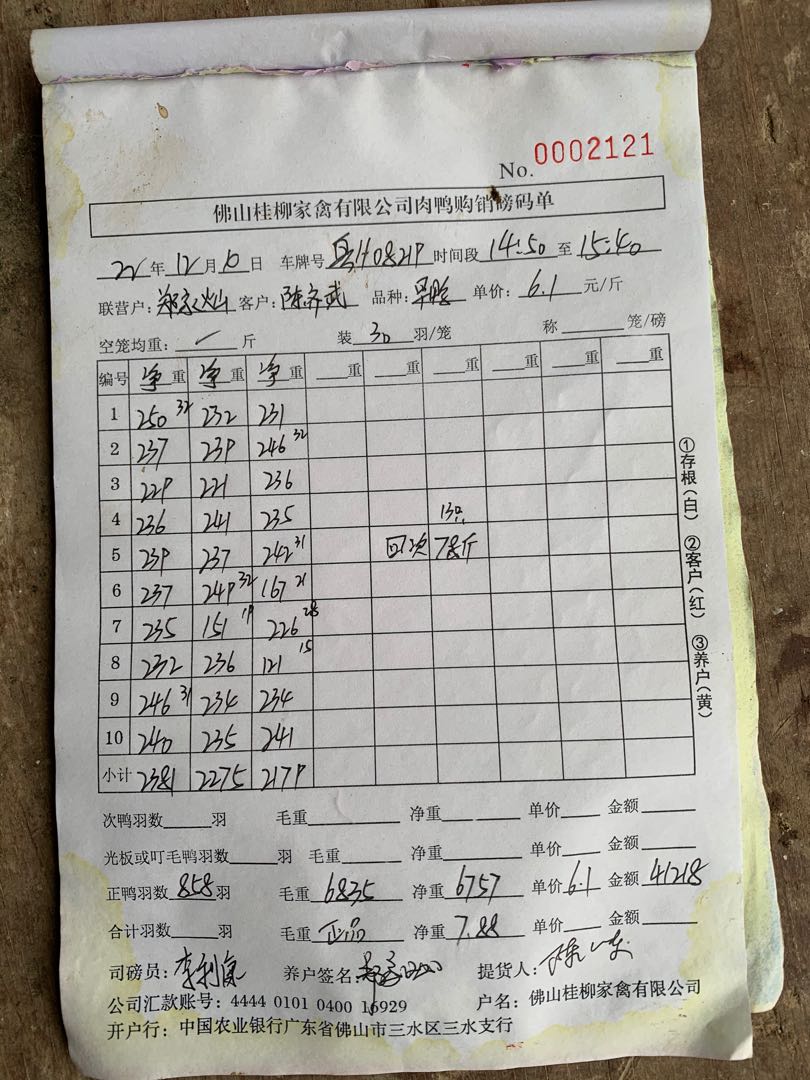 No. 0002121
佛山桂柳家禽有限公司肉鸭购销磅码单
22年12月10日 车牌号粤H0821P 时间段14:50至15:40
联营户: 客户:陈齐武 品种: 单价:6.1元/斤
空笼均重: 斤 装30羽/笼 称 笼/磅
编号 净重 净重 净重 重 重 重 重 重 重
1 250 32 232 231
2 237 239 246 32
3 229 221 236
4 236 241 235 13只
5 239 237 242 31 回次 78斤
6 237 249 32 167 21
7 235 151 19 226 28
8 232 236 121 15
9 246 31 234 234
10 240 235 241
小计 2381 2275 2179
次鸭羽数 羽 毛重 净重 单价 金额
光板或叮毛鸭羽数 羽 毛重 净重 单价 金额
正鸭羽数858羽 毛重6835 净重6757 单价6.1 金额41218
合计羽数 羽 毛重正品 净重7.88 单价 金额
司磅员: 养户签名: 提货人:
公司汇款账号: 4444 0101 0400 16929 户名: 佛山桂柳家禽有限公司
开户行: 中国农业银行广东省佛山市三水区三水支行
①存根(白) ②客户(红) ③养户(黄)